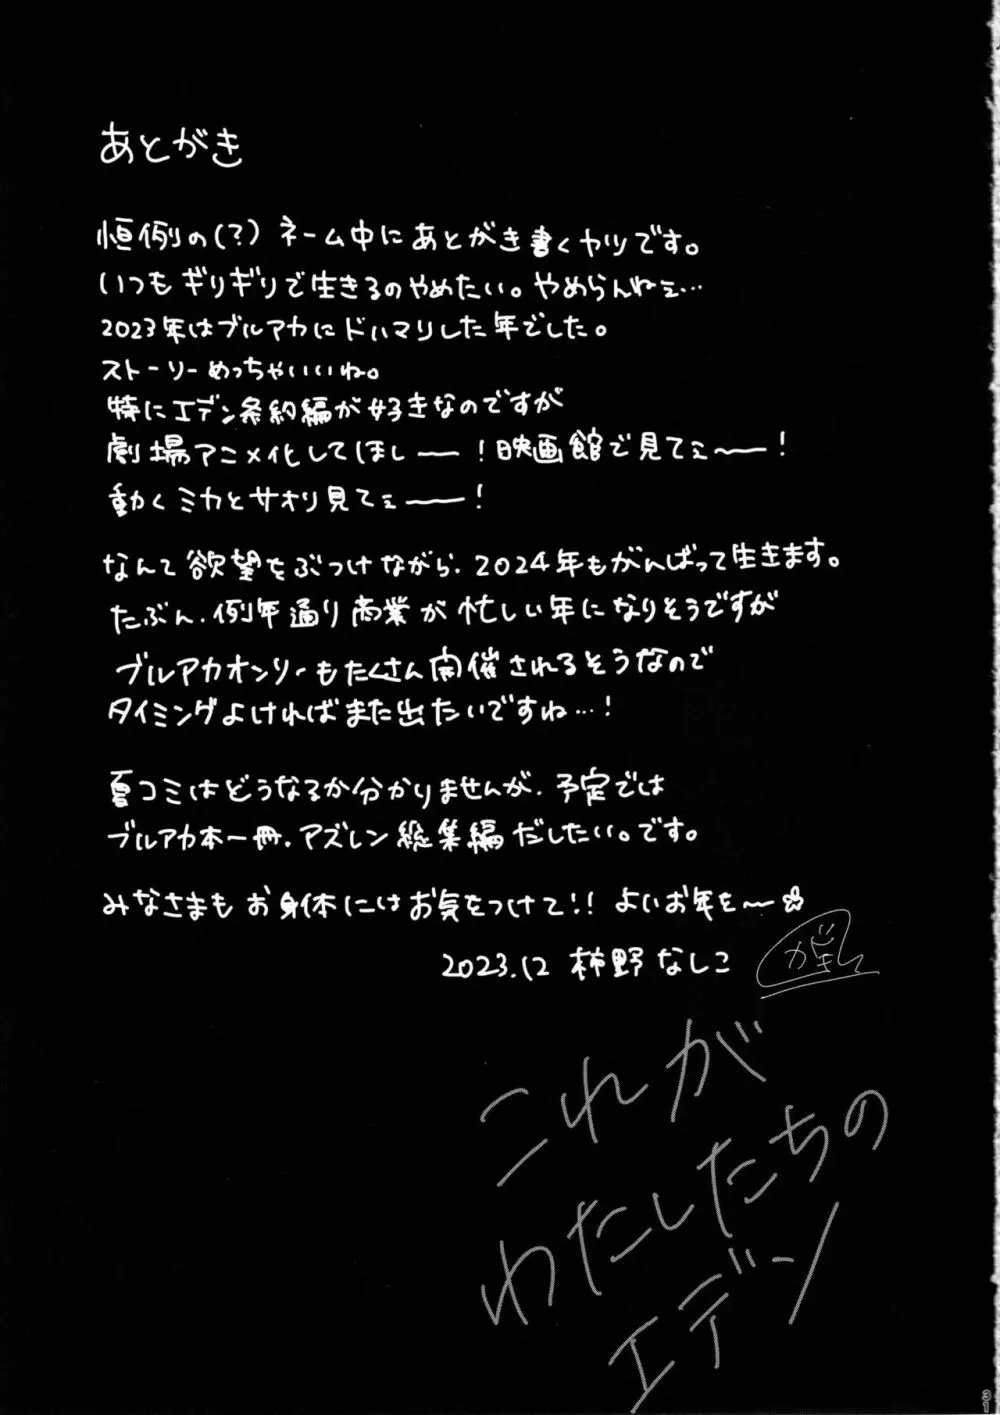 あとがき
恒例の(?) ネーム中にあとがき書くヤツです。
いつもギリギリで生きるのやめたい。やめらんねェ…
2023年はブルアカにドハマリした年でした。
ストーリーめっちゃいいね。
特にエデン条約編が好きなのですが
劇場アニメ化してほしー!映画館で見てェ〜ー!
動くミカとサオリ見てェー!
なんて欲望をぶつけながら、2024年もがんばって生きます。
たぶん、例年通り商業が忙しい年になりそうですが
ブルアカオンリーもたくさん開催されるそうなので
タイミングよければまた出たいですね…!
夏コミはどうなるか分かりませんが、予定では
ブルアカ本一冊、アズレン総集編だしたい。です。
みなさまもお身体にはお気をつけて!! よいお年を〜☆
2023.12 柿野なしこ
これが
わたしたちの
エデン
31